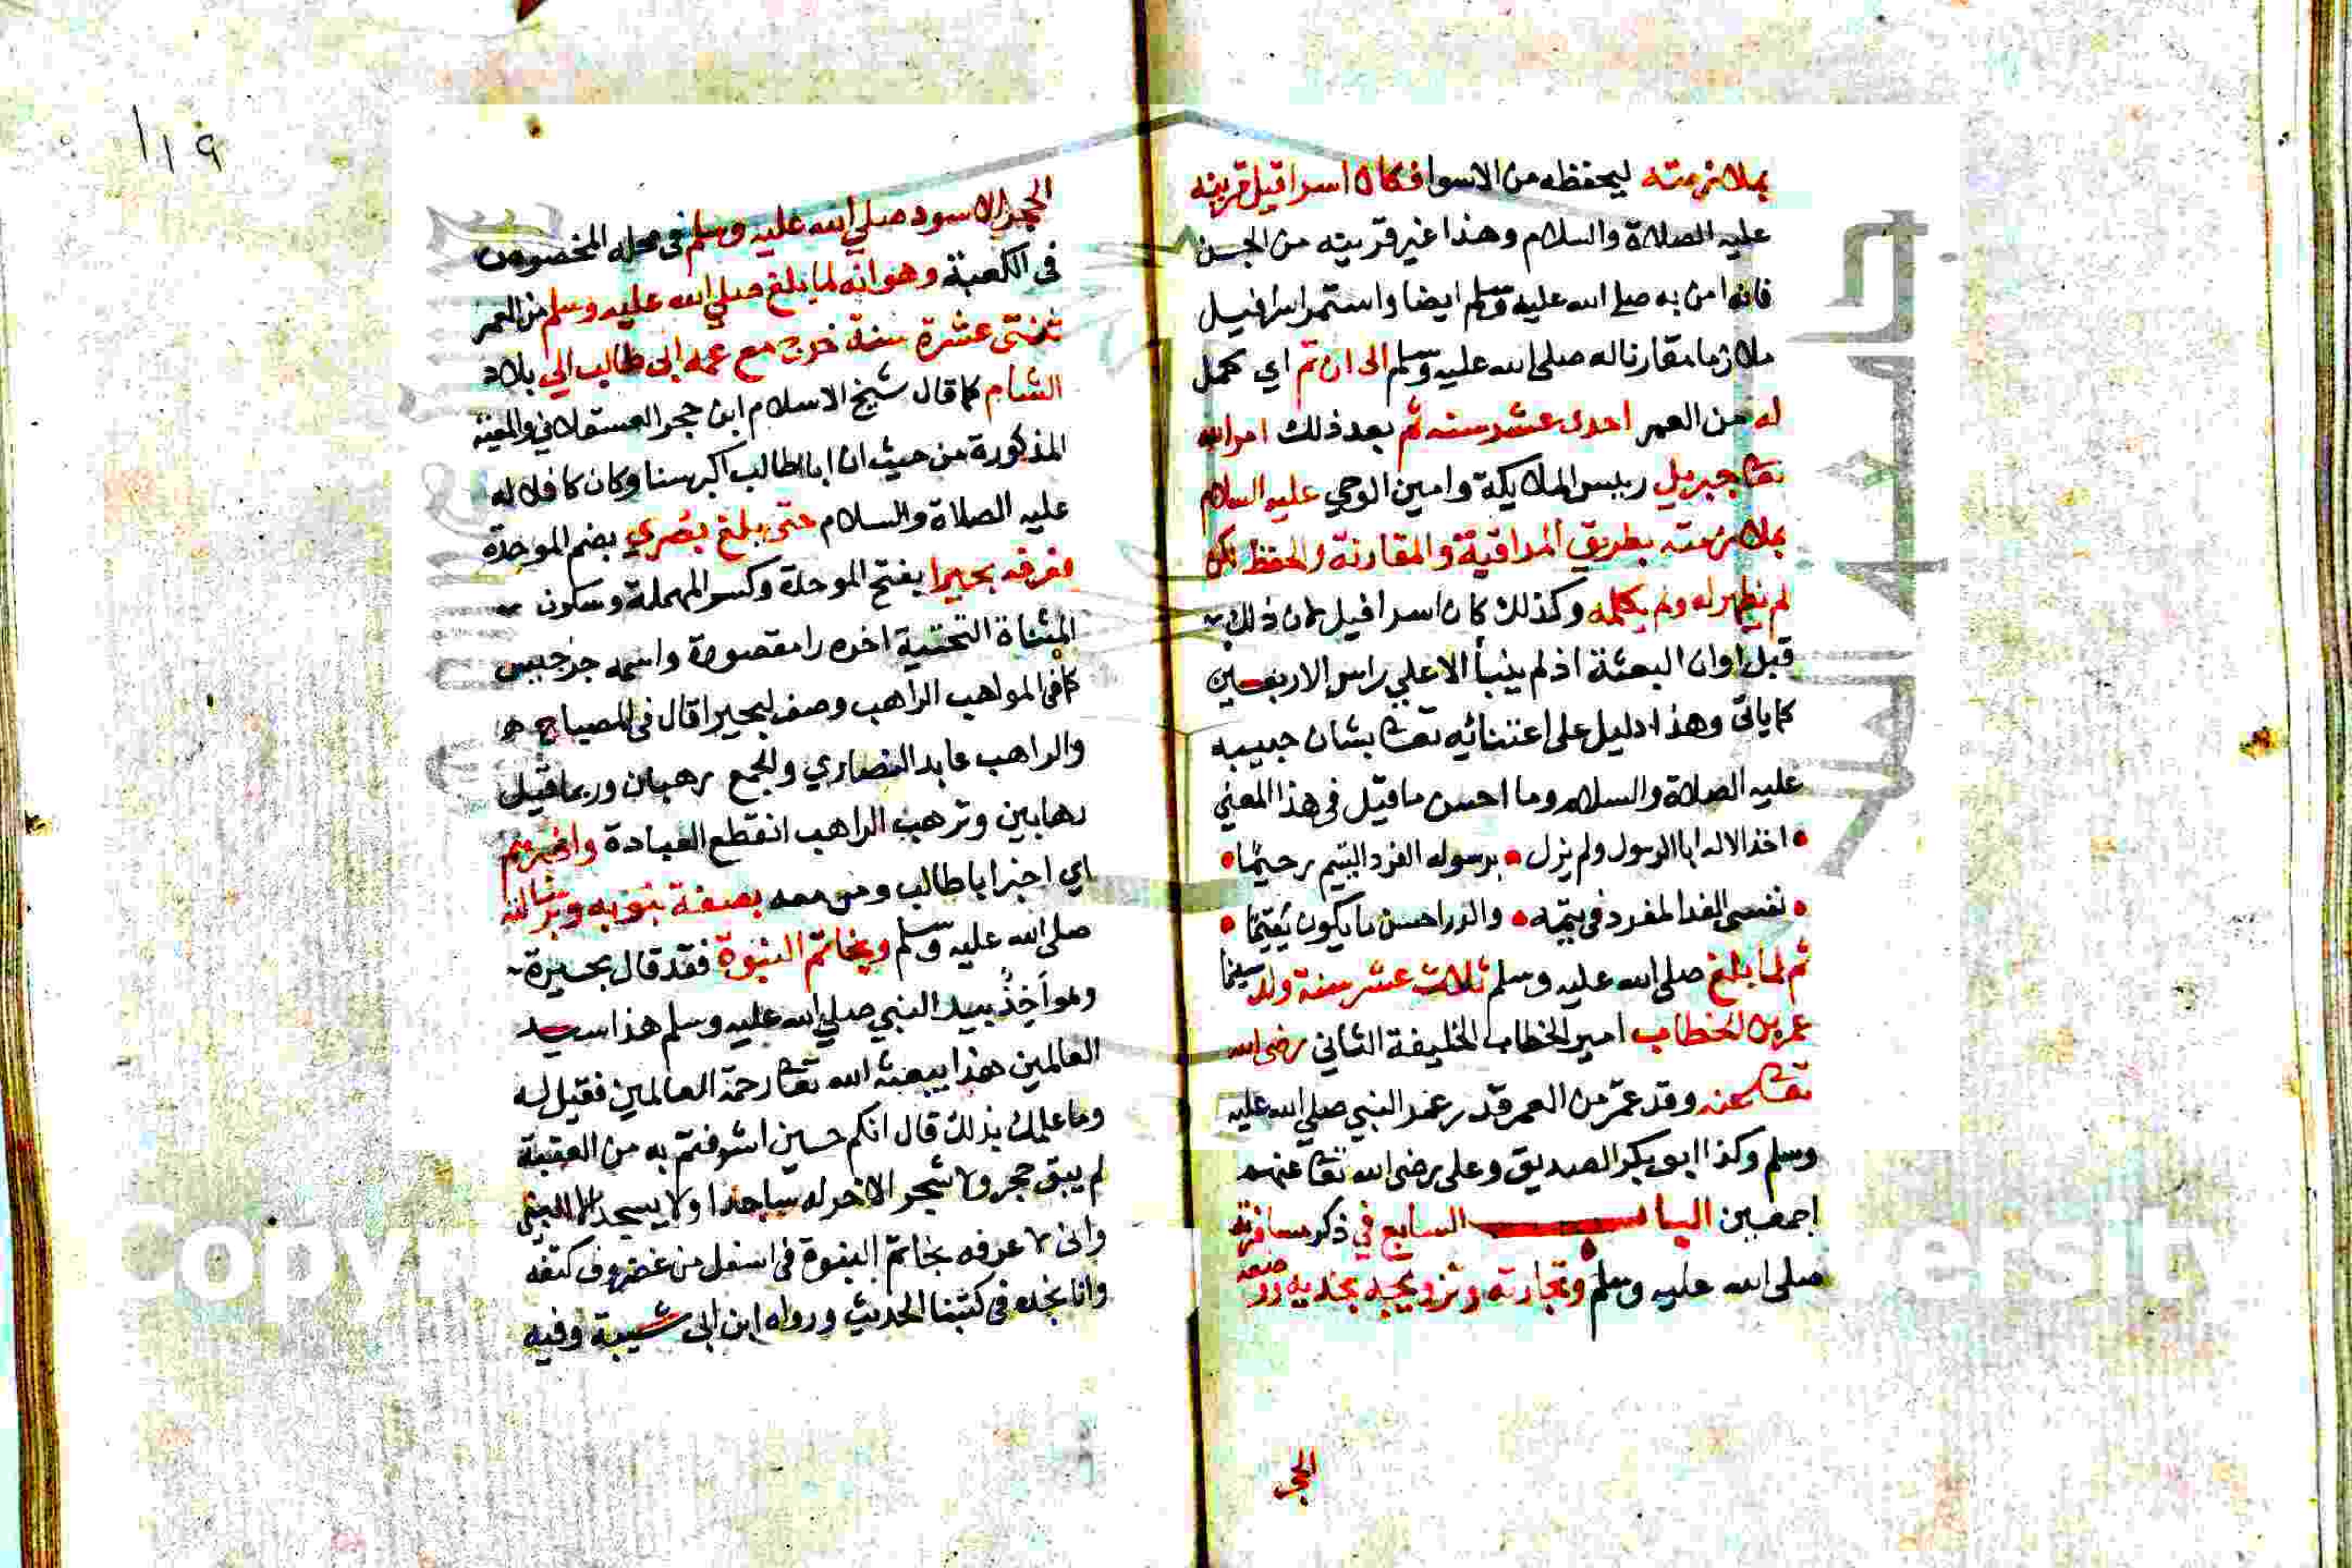 بملازمته ليحفظه من الاسوا فكان اسرافيل قرينه
عليه الصلاة والسلام وهذا غير قرينه من الجن
فانه امن به صلى الله عليه وسلم ايضا واستمر اسرافيل
ملازما مقارنا له صلى الله عليه وسلم الى ان تم اي كمل
له من العمر احدى عشر سنه ثم بعد ذلك امر الله
تعا جبريل رييس الملايكة وامين الوحي عليه السلام
بملازمته بطريق المراقبة والمقارنة والحفظ لكن
لم يظهر له ولم يكلمه وكذلك كان اسرافيل لان ذلك
قبل اوان البعثة اذ لم ينبأ الا علي راس الاربعين
كما ياتى وهذا دليل على اعتنائيه تعا بشان حبيبه
عليه الصلاة والسلام وما احسن ما قيل فى هذا المعني
اخذ الاله ابا الرسول ولم يزل برسوله الفرد اليتيم رحيما
نفسى الفدا لمفرد فى يتمه والدر احسن ما يكون يتيما
ثم لما بلغ صلى الله عليه وسلم ثلاث عشر سنة ولد سيدنا
عمر بن الخطاب امير الخطاب الخليفة الثاني رضى الله
تعا عنه وقد عمّر من العمر قدر عمر النبي صلي الله عليه
وسلم وكذا ابو بكر الصديق وعلى رضى الله تعا عنهم
اجمعين الباب السابع في ذكر مسافرته
صلى الله عليه وسلم وتجارته وتزويجه بخديجه ووضعه
الحجر
١١٩
الحجر الاسود صلي الله عليه وسلم فى محله المخصوص
فى الكعبة وهو انه لما بلغ صلي الله عليه وسلم من العمر
ثنتى عشرة سنة خرج مع عمه ابى طالب الي بلاد
الشام كما قال شيخ الاسلام ابن حجر العسقلاني والمعية
المذكورة من حيث ان ابا طالب اكبر سنا وكان كافلا له
عليه الصلاة والسلام حتى بلغ بصري بضم الموحدة
فعرفه بحيرا بفتح الموحدة وكسر المهملة وسكون
المثناة التحتية اخره را مقصورة واسمه جرجيس
كما فى المواهب الراهب وصف لبحيرا قال فى المصباح
والراهب عابد النصاري والجمع رهبان وربما قيل
رهابين وترهب الراهب انقطع للعبادة واخبرهم
اي اخبر ابا طالب ومن معه بصفة نبوته وبرسالته
صلى الله عليه وسلم وبخاتم النبوة فقد قال بحيرة
وهو اَخِذٌ بيد النبي صلي الله عليه وسلم هذا سيد
العالمين هذا يبعثه الله تعا رحمة العالمين فقيل له
وما علمك بذلك قال انكم حين اشرفتم به من العقبة
لم يبق حجر ولا شجر الا خر له ساجدا ولا يسجد الا لنبي
وانى لاعرفه بخاتم النبوة فى اسفل من غضروف كتفه
وانا نجده فى كتبنا الحديث ورواه ابن ابى شيبة وفيه